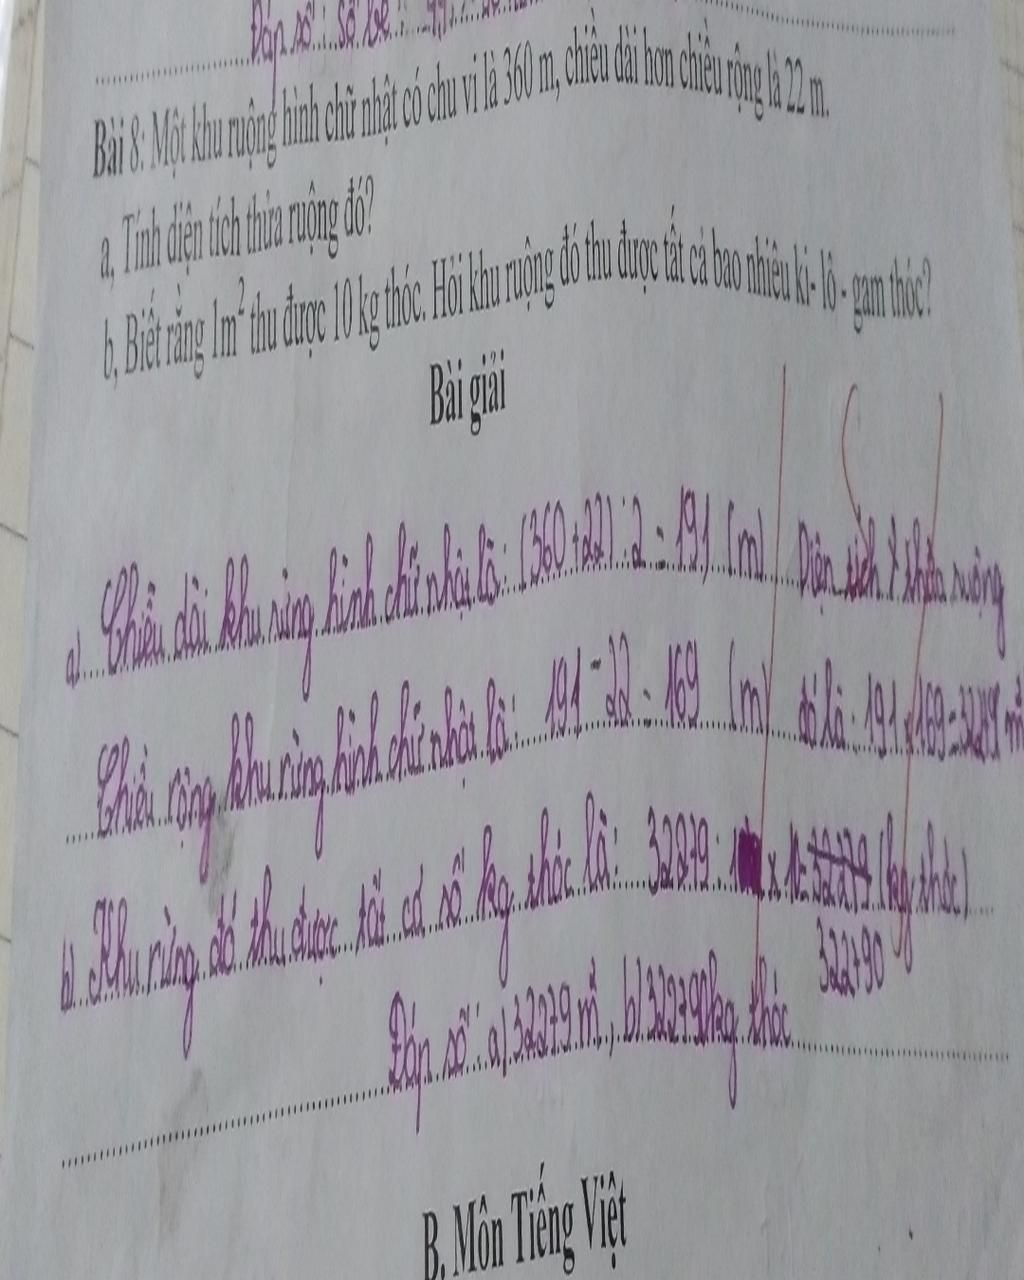 Đáp số: Số bé:
Bài 8: Một khu ruộng hình chữ nhật có chu vi là 360 m, chiều dài hơn chiều rộng là 22 m.
a, Tính diện tích thửa ruộng đó?
b, Biết rằng 1m² thu được 10 kg thóc. Hỏi khu ruộng đó thu được tất cả bao nhiêu ki- lô - gam thóc?
Bài giải
a) Chiều dài khu rừng hình chữ nhật là: (360 + 22) : 2 = 191 (m) Diện tích thửa ruộng
Chiều rộng khu rừng hình chữ nhật là: 191 - 22 = 169 (m) đó là: 191 x 169 = 32279 m²
b) Khu rừng đó thu được tất cả số kg thóc là: 32279 : 1 x 10 = 32279 (kg thóc)
322790
Đáp số: a) 32279 m², b) 322790kg thóc
B. Môn Tiếng Việt